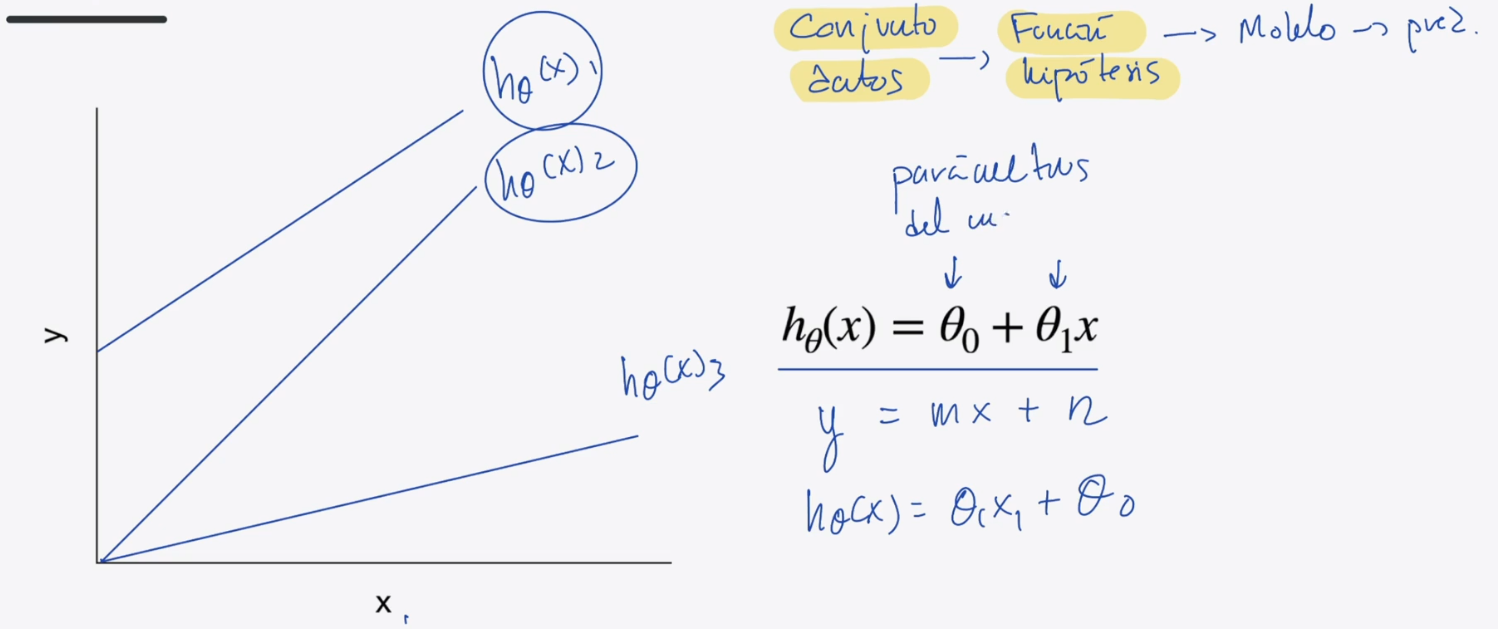 hθ(x)1
hθ(x)2
hθ(x)3
y
x1
Conjunto
datos
→ Función
hipótesis
→ Modelo → pred.
parámetros
del m.
↓ ↓
hθ(x) = θ0 + θ1x
y = mx + n
hθ(x) = θ1x1 + θ0